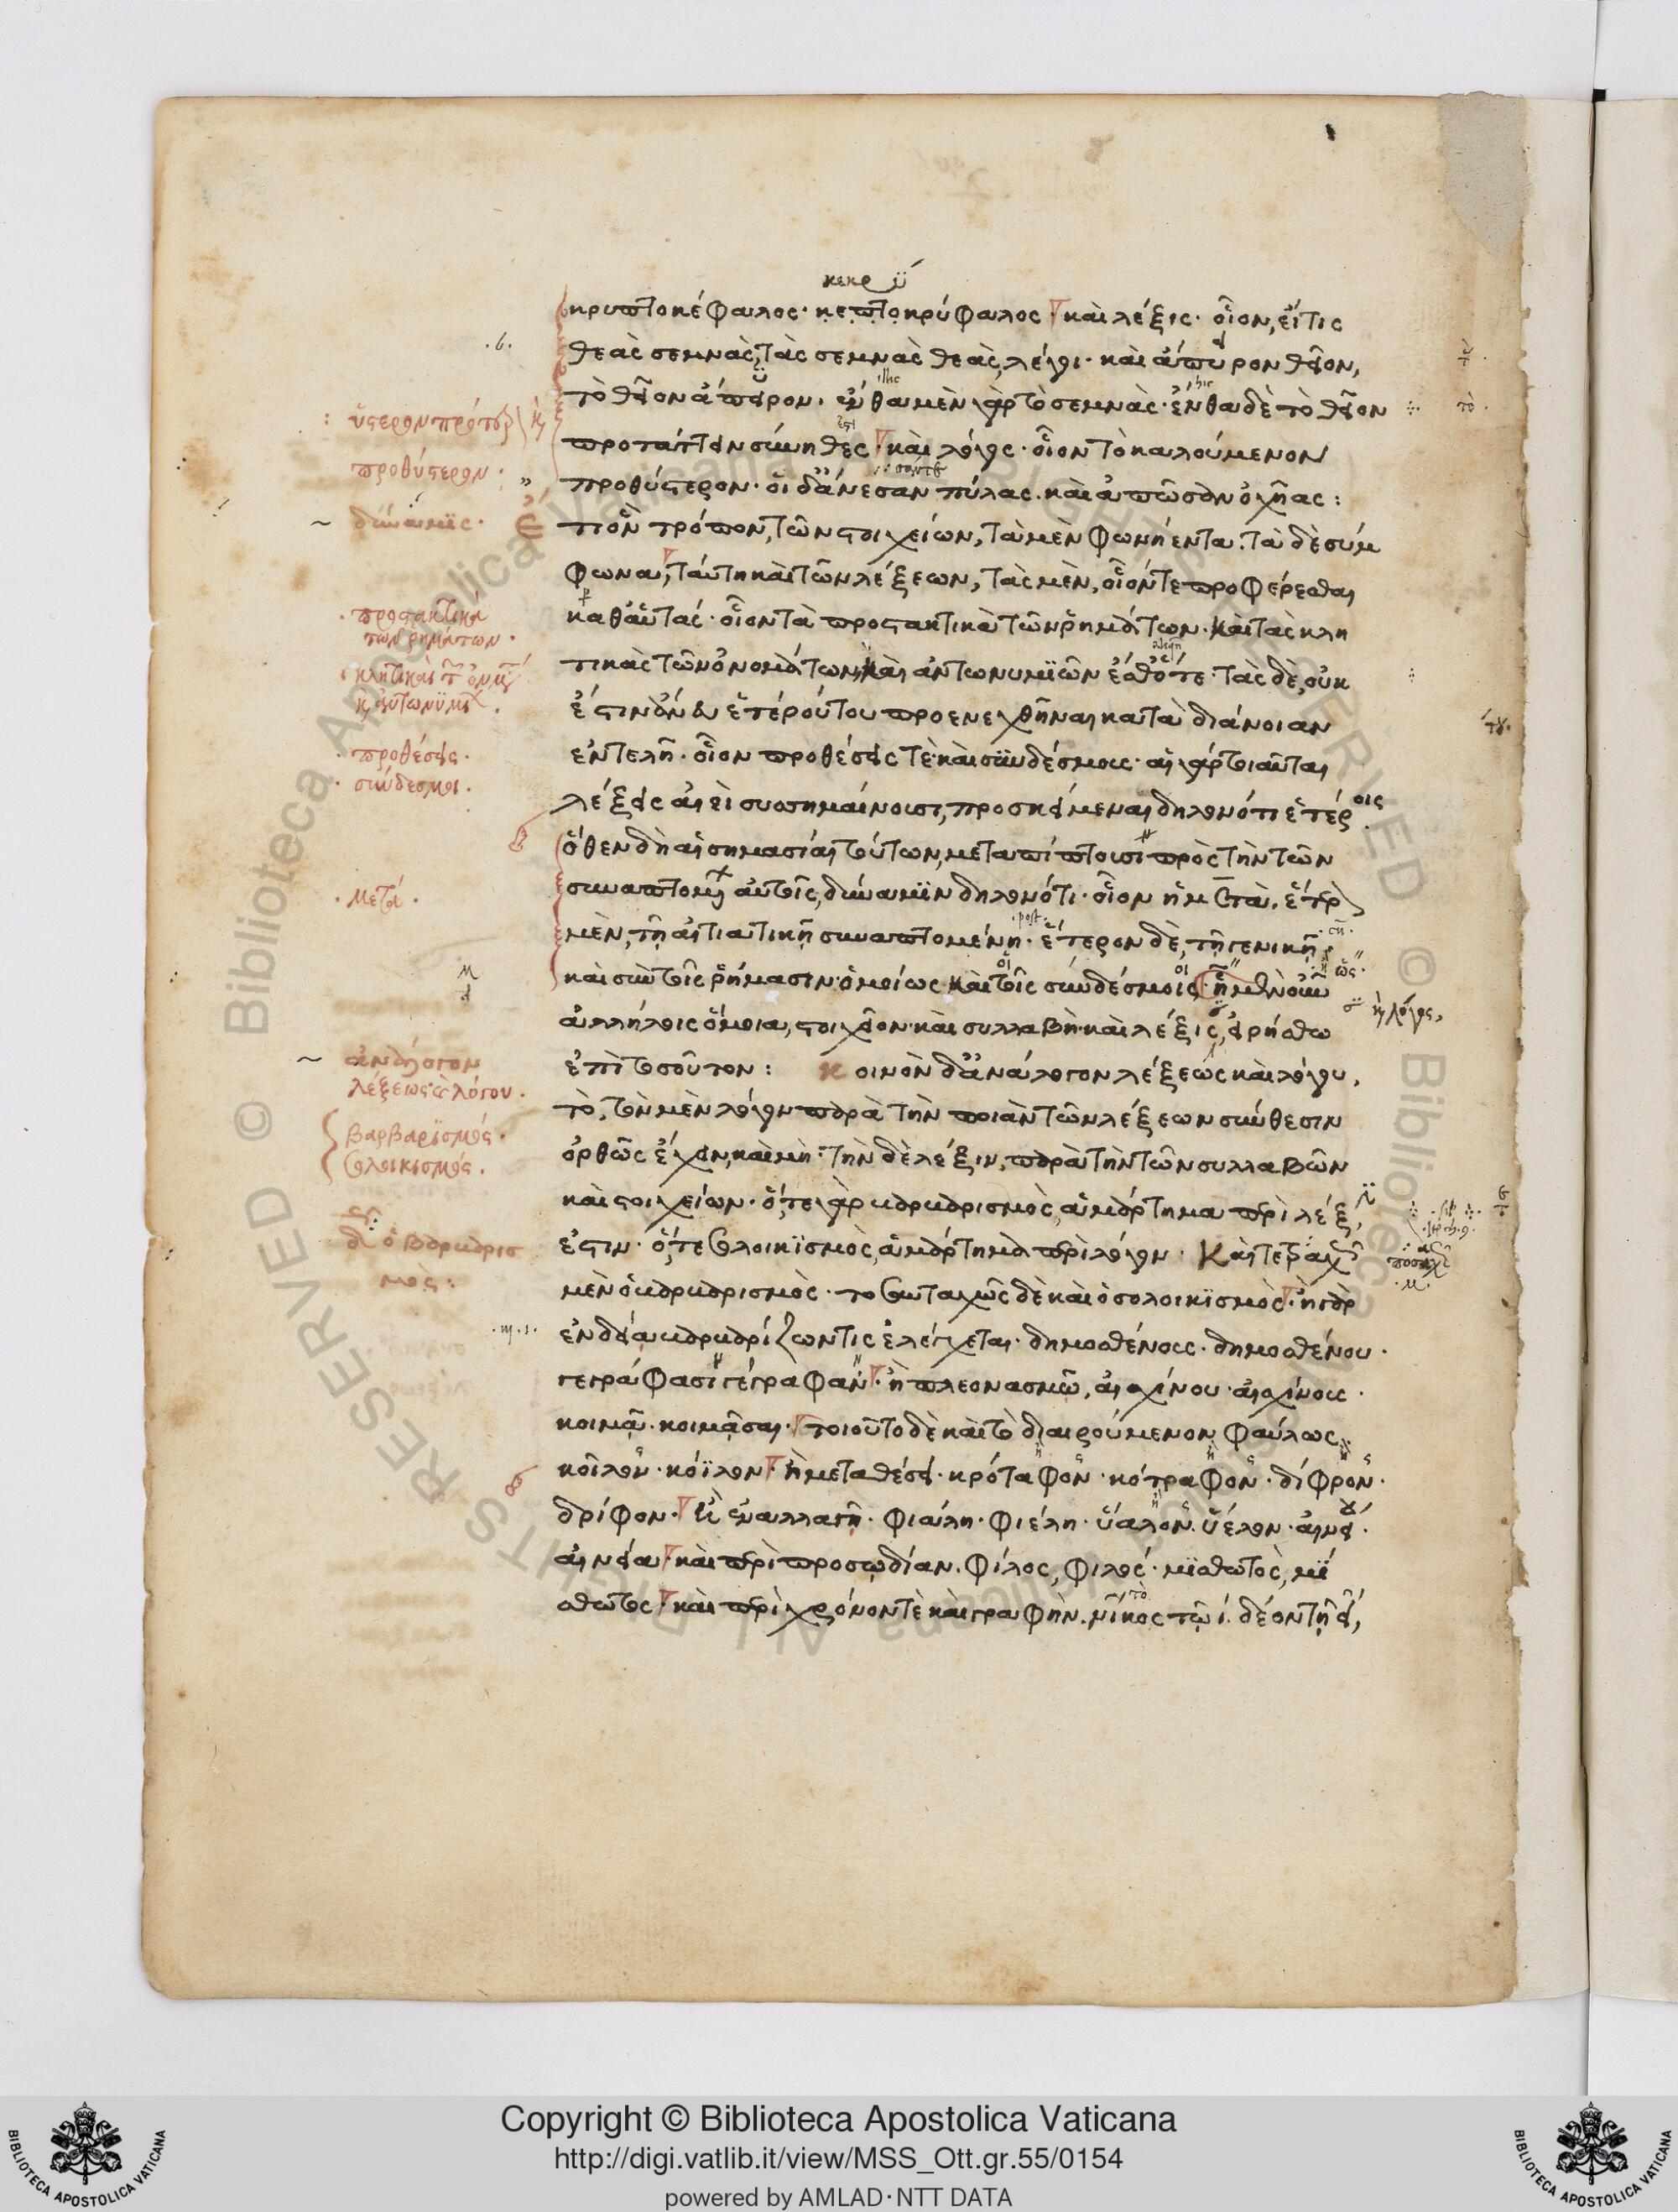 κρυπτοκέφαλος· κεπτοκρύφαλος· καὶ λέξις· οἷον, εἴ τις
θεὰς σεμνὰς, τὰς σεμνὰς θεὰς, λέγοι· καὶ ἄπυρον θεῖον,
τὸ θεῖον ἄπειρον. ἔνθα μὲν γὰρ τὸ σεμνὰς· ἔνθα δὲ τὸ θεῖον
προτάττειν σύνηθες· καὶ λόγος· οἷον τὸ καλούμενον
προθύστερον· οἱ δ' ἄνεσαν πύλας. καὶ ἀπῶσαν ὀχῆας:
τιὸν τρόπον, τῶν στοιχείων, τὰ μὲν φωνήεντα. τὰ δὲ σύμ
φωνα, ταύτη καὶ τῶν λέξεων, τὰς μὲν, οἷόν τε προφέρεσθαι
καθ' αὑτάς· οἷον τὰ προστακτικὰ τῶν ῥημάτων. καὶ τὰς κλη
τικὰς τῶν ὀνομάτων, καὶ ἀντωνυμϊῶν ἔσθ' ὅτε· τὰς δὲ, οὐκ
ἔστιν ἄνευ ἑτέρου του προενεχθῆναι κατὰ διάνοιαν
ἐντελῆ· οἷον προθέσεις τὲ καὶ συνδέσμους· αἱ γὰρ τοιαῦται
λέξεις ἀεὶ συσσημαίνουσι, προσκείμεναι δηλονότι ἑτέροις
ὅθεν δὴ αἱ σημασίαι τούτων, μεταπίπτουσι πρὸς τὴν τῶν
συναπτομένων αὐτοῖς, δύναμϊν δηλονότι· οἷον ἡ μετά. ἕτερον
μὲν, τῇ αἰτιατικῇ συναπτομένη· ἕτερον δὲ, τῇ γενικῇ·
καὶ σὺν τοῖς ῥήμασιν· ὁμοίως καὶ τοῖς συνδέσμοις· ᾗ μὲν οὖν
ἀλλήλοις ὅμοια, στοιχεῖον· καὶ συλλαβὴ· καὶ λέξις, εἰρήσθω
ἐπὶ τοσοῦτον: κοινὸν δ' ἀνάλογον λέξεώς καὶ λόγου,
τὸ, τὸν μὲν λόγον παρὰ τὴν ποιὰν τῶν λέξεων σύνθεσιν
ὀρθῶς ἔχειν, καὶ μὴ· τὴν δὲ λέξιν, παρὰ τὴν τῶν συλλαβῶν
καὶ στοιχείων· ὅ, τε γὰρ βαρβαρισμὸς, ἁμάρτημα περὶ λέξιν
ἐστιν· ὅ, τε σολοικϊσμὸς, ἁμάρτημα περὶ λόγον· Καὶ τετραχῶς
μὲν ὁ βαρβαρισμὸς· τοσαυταχῶς δὲ καὶ ὁ σολοικϊσμὸς· ἢ γὰρ
ἐνδείᾳ βαρβαρίζων τις ἐλέγχεται· δημοσθένους· δημοσθένου·
γεγράφασι γέγραφαν· ἢ πλεονασμῷ, αἰσχίνου· αἰσχίνους·
κοιμᾷ· κοιμᾶσαι· τοιοῦτο δὲ καὶ τὸ διαιρούμενον φαύλως
κοῖλον· κόϊλον· ἢ μεταθέσει· κρόταφον· κότραφον· δίφρον·
δρίφον· ἢ ἐναλλαγῇ· φιάλη· φιέλη· ὕαλον· ὕέλον· αἰνεί·
αἰνεία· καὶ περὶ προσῳδίαν. φίλος, φιλός· μϊσθωτὸς, μϊ
σθῶτος· καὶ περὶ χρόνον τὲ καὶ γραφὴν. μῖκος τῷ ι. δέον τῇ ει,
ὕστερον πρότερον
προθύστερον·
δύναμϊς·
· προστακτικὰ
τῶν ῥημάτων·
· προθέσεις·
· σύνδεσμοι.
· μετά·
ἀνάλογον
λέξεως καὶ λόγου.
βαρβαρϊσμός·
σολοικισμός.
δ ὁ βαρβαρισ
μός:
καὶ λόγος,
Copyright © Biblioteca Apostolica Vaticana
http://digi.vatlib.it/view/MSS_Ott.gr.55/0154
powered by AMLAD·NTT DATA
BIBLIOTECA APOSTOLICA VATICANA
BIBLIOTECA APOSTOLICA VATICANA